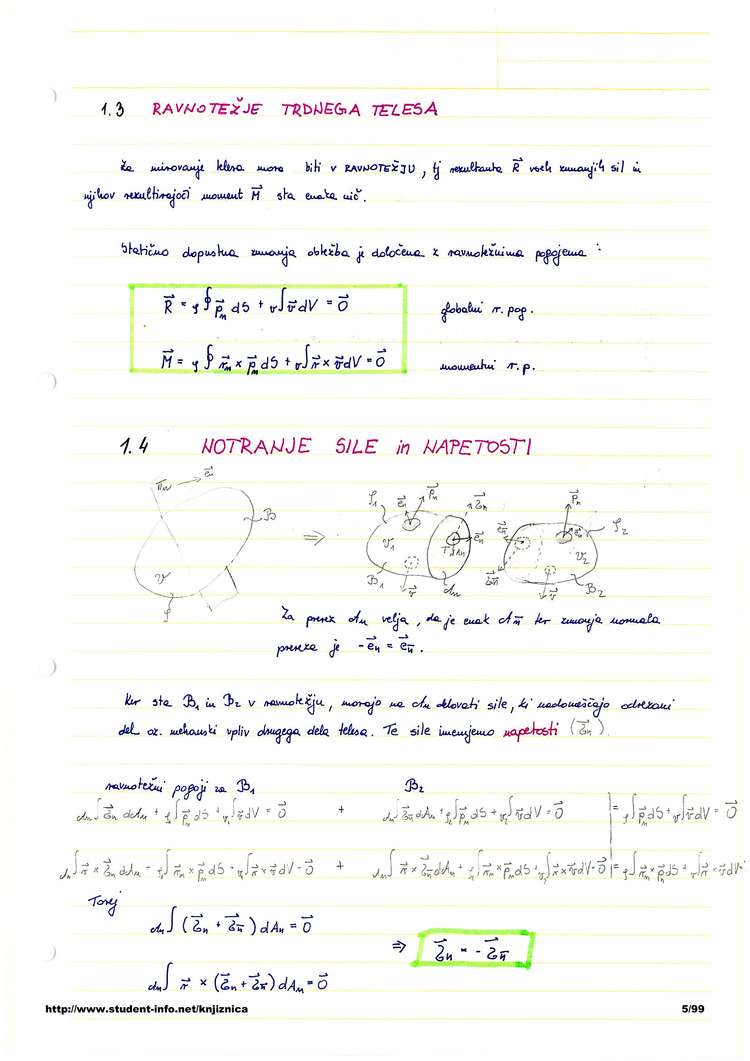 1.3 RAVNOTEŽJE TRDNEGA TELESA
Za mirovanje telesa mora biti v RAVNOTEŽJU, tj rezultanta R⃗ vseh zunanjih sil in
njihov rezultirajoči moment M⃗ sta enaka nič.
Statično dopustna zunanja obtežba je določena z ravnotežnima pogojema :
R⃗ = 𝒮∮ p⃗ₙ dS + 𝒱∫ v⃗ dV = 0⃗ globalni r. pog.
M⃗ = 𝒮∮ r⃗ₙ × p⃗ₙ dS + 𝒱∫ r⃗ × v⃗ dV = 0⃗ momentni r.p.
1.4 NOTRANJE SILE in NAPETOSTI
πₙ e⃗ₙ B 𝒱 𝒮
⇒
𝒮₁ e⃗ₙ p⃗ₙ 𝒱₁ B₁ v⃗ T 𝒜ₙ e⃗ₙ
p⃗ₙ e⃗ₙ 𝒮₂ 𝒱₂ B₂ v⃗
Za prerez 𝒜ₙ velja, da je enak 𝒜n̄ ter zunanja normala
prereza je -e⃗ₙ = e⃗n̄.
Ker sta B₁ in B₂ v ravnotežju, morajo na 𝒜ₙ delovati sile, ki nadomeščajo odrezani
del oz. mehanski vpliv drugega dela telesa. Te sile imenujemo napetosti (σ⃗ₙ).
ravnotežni pogoji za B₁ B₂
𝒜ₙ∫ σ⃗ₙ dAₙ + 𝒮₁∫ p⃗ₙ dS + 𝒱₁∫ v⃗ dV = 0⃗ + 𝒜ₙ∫ σ⃗n̄ dAₙ + 𝒮₂∫ p⃗ₙ dS + 𝒱₂∫ v⃗ dV = 0⃗ | = 𝒮∫ p⃗ₙ dS + 𝒱∫ v⃗ dV = 0⃗
𝒜ₙ∫ r⃗ × σ⃗ₙ dAₙ + 𝒮₁∫ r⃗ₙ × p⃗ₙ dS + 𝒱₁∫ r⃗ × v⃗ dV = 0⃗ + 𝒜ₙ∫ r⃗ × σ⃗n̄ dAₙ + 𝒮₂∫ r⃗ₙ × p⃗ₙ dS + 𝒱₂∫ r⃗ × v⃗ dV = 0⃗ | = 𝒮∫ r⃗ₙ × p⃗ₙ dS + 𝒱∫ r⃗ × v⃗ dV
Torej
𝒜ₙ∫ (σ⃗ₙ + σ⃗n̄) dAₙ = 0⃗
⇒ σ⃗ₙ = - σ⃗n̄
𝒜ₙ∫ r⃗ × (σ⃗ₙ + σ⃗n̄) dAₙ = 0⃗
http://www.student-info.net/knjiznica 5/99